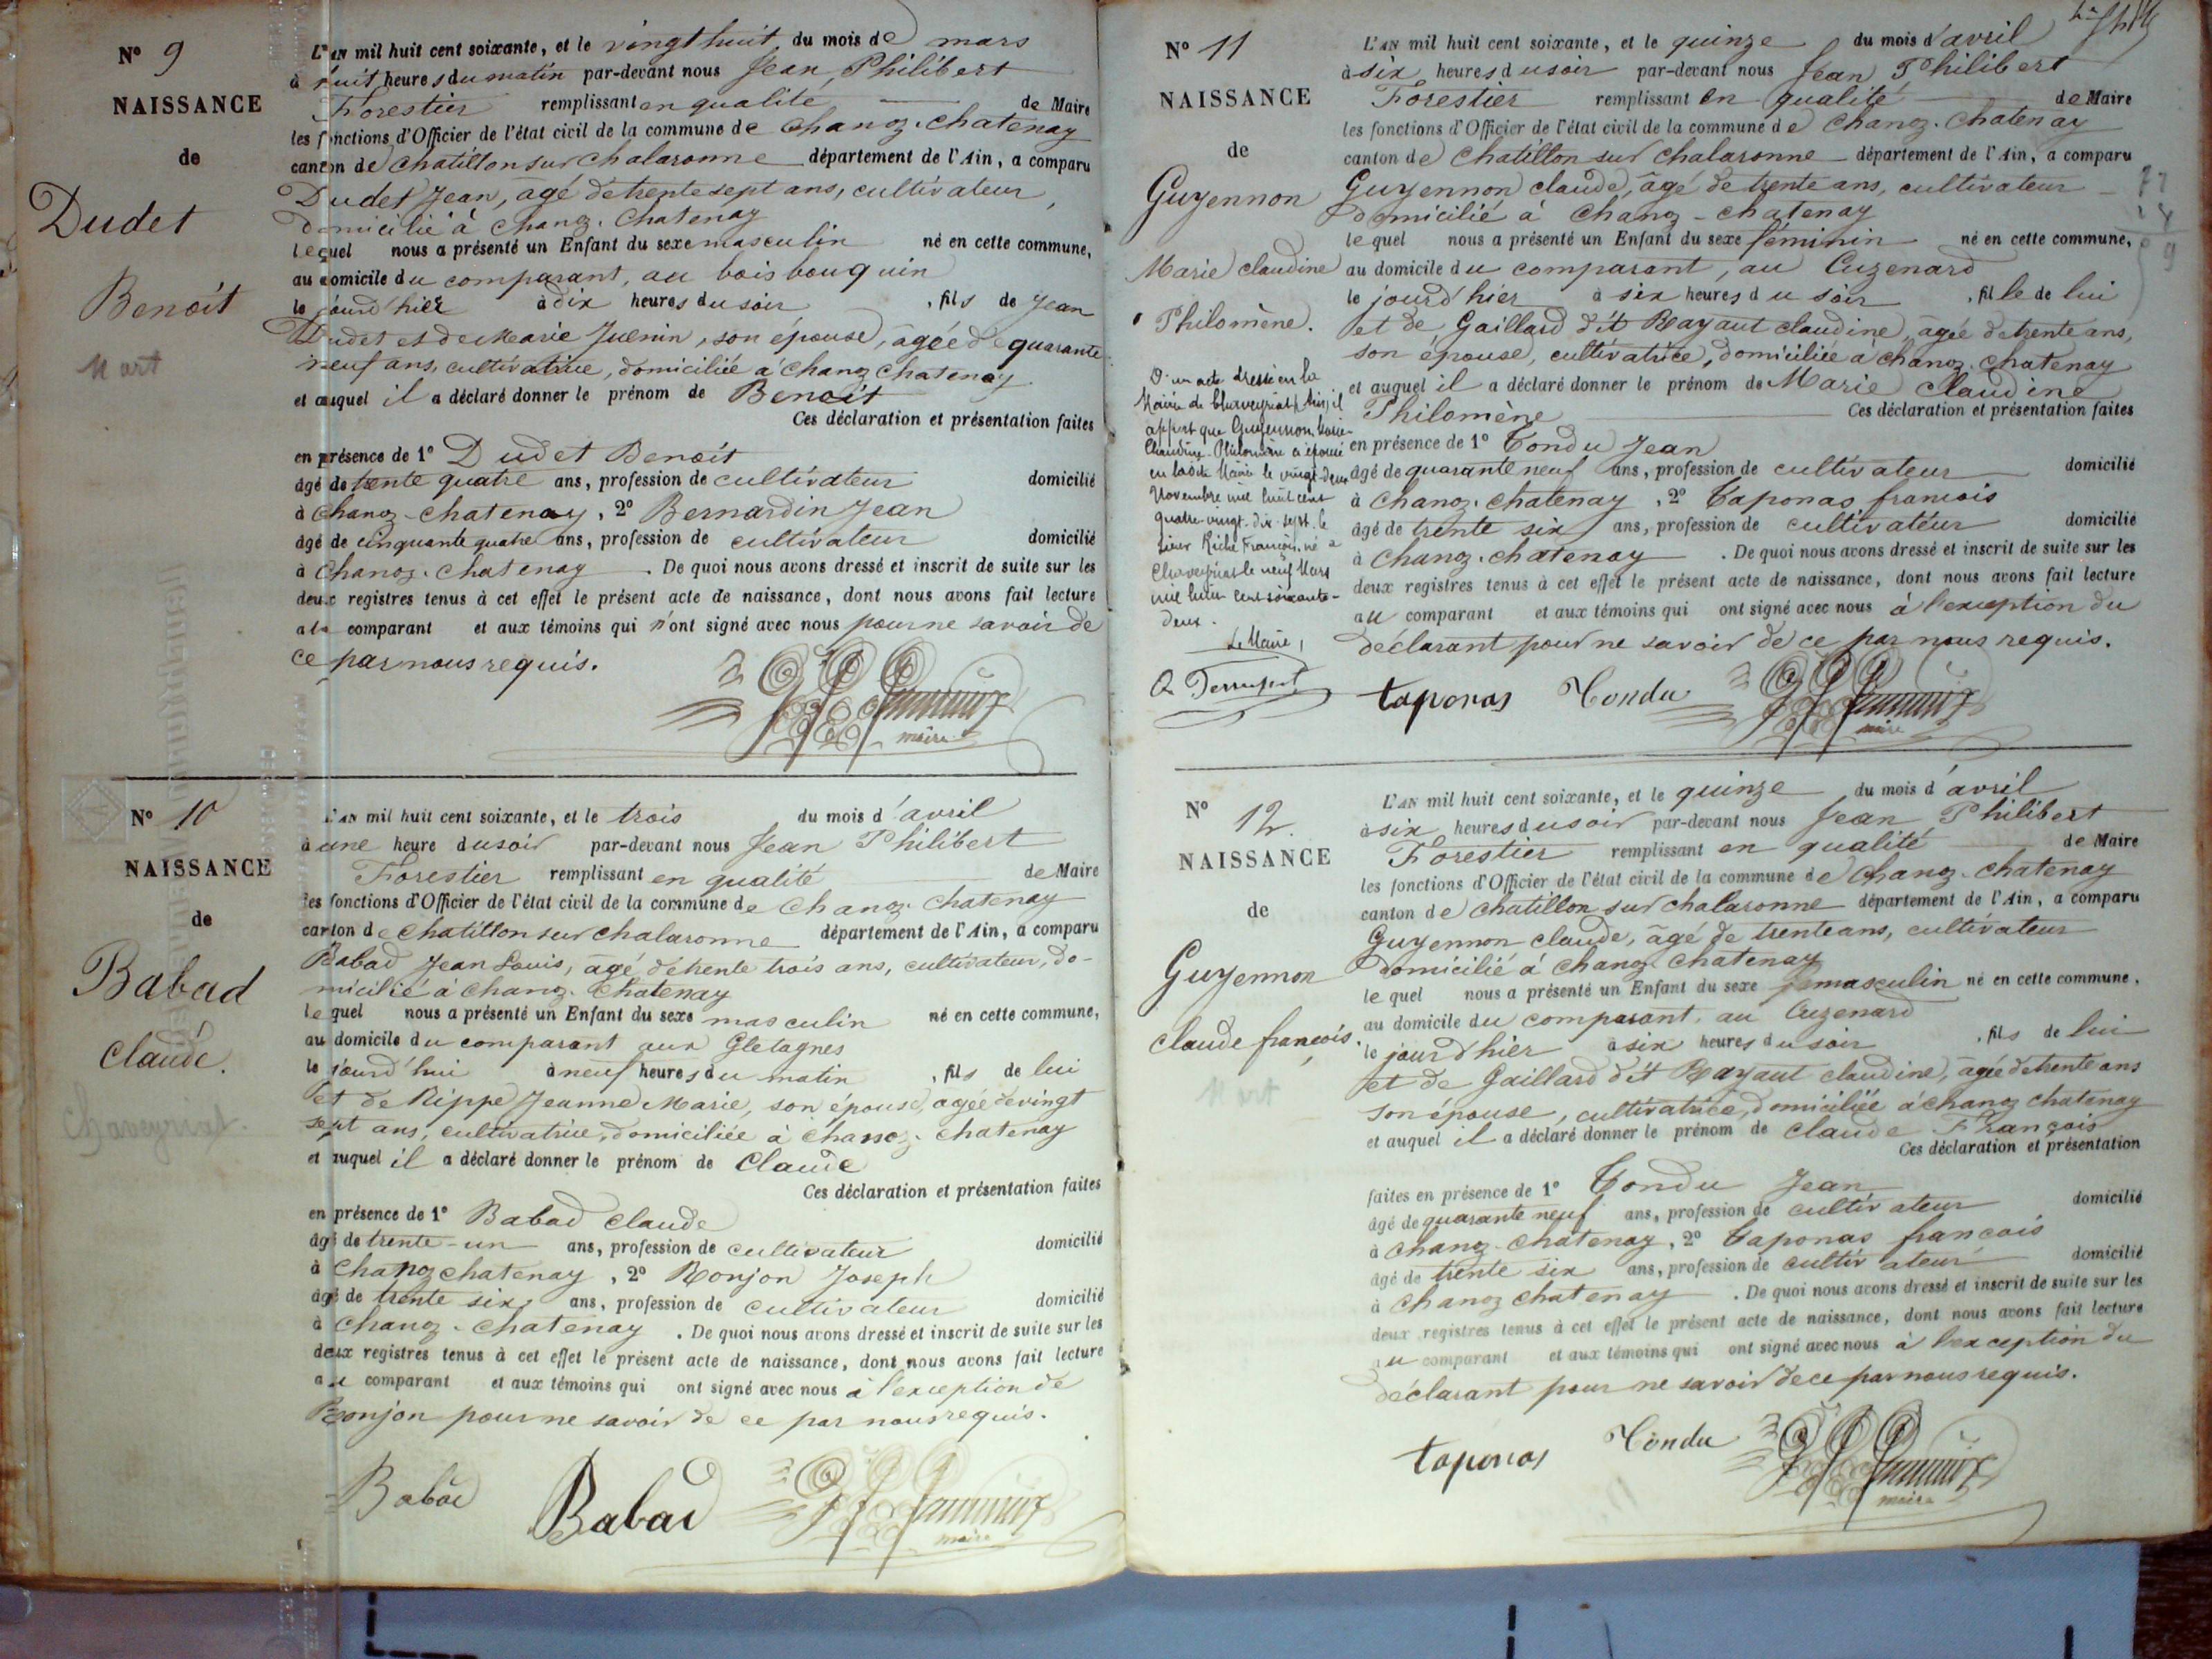 N° 9
NAISSANCE
de
Dudet
Benoit
Mort
L'AN mil huit cent soixante, et le vingt huit du mois de mars
à huit heures du matin par-devant nous Jean Philibert
Forestier remplissant en qualité de Maire
les fonctions d'Officier de l'état civil de la commune de Chanoz-Chatenay
canton de Chatillon sur Chalaronne département de l'Ain, a comparu
Dudet Jean, âgé de trente sept ans, cultivateur,
domicilié à Chanoz-Chatenay
lequel nous a présenté un Enfant du sexe masculin né en cette commune,
au domicile du comparant, au bois bouquin
le jourd'hier à dix heures du soir, fils de Jean
Dudet et de Marie Juenin, son épouse, agée de quarante
neuf ans, cultivatrice, domiciliée à Chanoz Chatenay
et auquel il a déclaré donner le prénom de Benoit
Ces déclaration et présentation faites
en présence de 1° Dudet Benoit
âgé de trente quatre ans, profession de cultivateur domicilié
à Chanoz-Chatenay, 2° Bernardin Jean
âgé de cinquante quatre ans, profession de cultivateur domicilié
à Chanoz-Chatenay. De quoi nous avons dressé et inscrit de suite sur les
deux registres tenus à cet effet le présent acte de naissance, dont nous avons fait lecture
au comparant et aux témoins qui n'ont signé avec nous pour ne savoir de
ce par nous requis.
maire
N° 10
NAISSANCE
de
Babad
Claude.
Chaveyriat.
L'AN mil huit cent soixante, et le trois du mois d'avril
à une heure du soir par-devant nous Jean Philibert
Forestier remplissant en qualité de Maire
les fonctions d'Officier de l'état civil de la commune de Chanoz Chatenay
canton de Chatillon sur Chalaronne département de l'Ain, a comparu
Babad Jean Louis, agé de trente trois ans, cultivateur, do-
micilié à Chanoz-Chatenay
lequel nous a présenté un Enfant du sexe masculin né en cette commune,
au domicile du comparant aux Gletagnes
le jourd'hui à neuf heures du matin, fils de lui
et de Rippe Jeanne Marie, son épouse, agée de vingt
sept ans, cultivatrice, domiciliée à Chanoz-Chatenay
et auquel il a déclaré donner le prénom de Claude
Ces déclaration et présentation faites
en présence de 1° Babad Claude
âgé de trente-un ans, profession de cultivateur domicilié
à Chanoz chatenay, 2° Ronjon Joseph
âgé de trente six ans, profession de cultivateur domicilié
à Chanoz-Chatenay. De quoi nous avons dressé et inscrit de suite sur les
deux registres tenus à cet effet le présent acte de naissance, dont nous avons fait lecture
au comparant et aux témoins qui ont signé avec nous à l'exception de
Ronjon pour ne savoir de ce par nous requis.
Babad Babad
maire
N° 11
NAISSANCE
de
Guyennon
Marie Claudine
Philomène.
D'un acte dressé en la
Mairie de Chaveyriat (Ain), il
appert que Guyennon Marie
Claudine Philomène a épousé
en ladite Mairie le vingt-deux
Novembre mil huit cent
quatre-vingt-dix-sept le
sieur Riche François né à
Chaveyriat le neuf Mars
mil huit cent soixante-
deux.
Le Maire,
L'AN mil huit cent soixante, et le quinze du mois d'avril
à six heures du soir par-devant nous Jean Philibert
Forestier remplissant en qualité de Maire
les fonctions d'Officier de l'état civil de la commune de Chanoz-Chatenay
canton de Chatillon sur Chalaronne département de l'Ain, a comparu
Guyennon Claude, âgé de trente ans, cultivateur
domicilié à Chanoz-Chatenay
lequel nous a présenté un Enfant du sexe féminin né en cette commune,
au domicile du comparant, au Cuzenard
le jourd'hier à six heures du soir, fille de lui
et de Gaillard dit Rayaut Claudine, agée de trente ans,
son épouse, cultivatrice, domiciliée à Chanoz-Chatenay
et auquel il a déclaré donner le prénom de Marie Claudine
Philomène Ces déclaration et présentation faites
en présence de 1° Tondu Jean
âgé de quarante neuf ans, profession de cultivateur domicilié
à Chanoz-Chatenay, 2° Taponas francois
âgé de trente six ans, profession de cultivateur domicilié
à Chanoz-Chatenay. De quoi nous avons dressé et inscrit de suite sur les
deux registres tenus à cet effet le présent acte de naissance, dont nous avons fait lecture
au comparant et aux témoins qui ont signé avec nous à l'exception du
déclarant pour ne savoir de ce par nous requis.
taponas Tondu
maire
N° 12.
NAISSANCE
de
Guyennon
Claude françois.
Mort
L'AN mil huit cent soixante, et le quinze du mois d'avril
à six heures du soir par-devant nous Jean Philibert
Forestier remplissant en qualité de Maire
les fonctions d'Officier de l'état civil de la commune de Chanoz-Chatenay
canton de Chatillon sur Chalaronne département de l'Ain, a comparu
Guyennon Claude, âgé de trente ans, cultivateur
domicilié à Chanoz-Chatenay
lequel nous a présenté un Enfant du sexe masculin né en cette commune,
au domicile du comparant, au Cuzenard
le jourd'hier à six heures du soir, fils de lui
et de Gaillard dit Rayaut Claudine, agée de trente ans
son épouse, cultivatrice, domiciliée à Chanoz Chatenay
et auquel il a déclaré donner le prénom de Claude François
Ces déclaration et présentation
faites en présence de 1° Tondu Jean
âgé de quarante neuf ans, profession de cultivateur domicilié
à Chanoz-Chatenay, 2° Taponas francois
âgé de trente six ans, profession de cultivateur domicilié
à Chanoz Chatenay. De quoi nous avons dressé et inscrit de suite sur les
deux registres tenus à cet effet le présent acte de naissance, dont nous avons fait lecture
au comparant et aux témoins qui ont signé avec nous à l'exception du
déclarant pour ne savoir de ce par nous requis.
taponas Tondu
maire